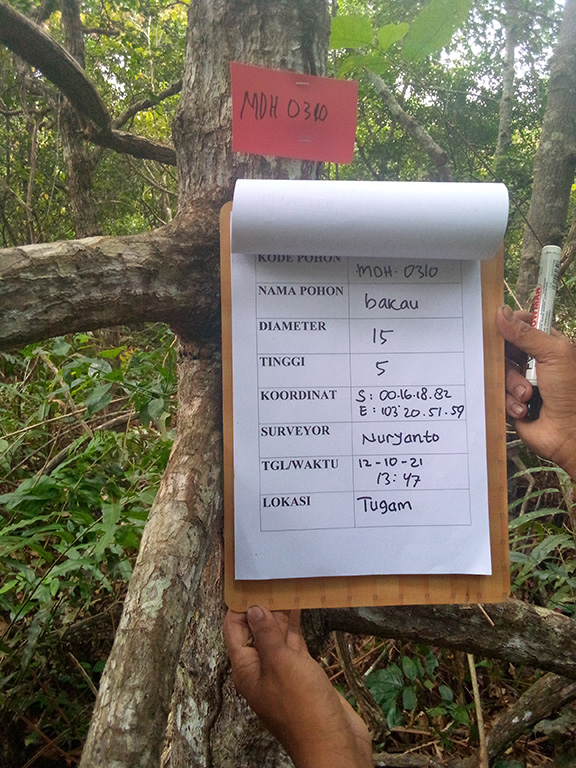 MDH 0310
KODE POHON MDH. 0310
NAMA POHON bakau
DIAMETER 15
TINGGI 5
KOORDINAT S : 00.16.18.82
E : 103°20.51.59
SURVEYOR Nuryanto
TGL/WAKTU 12-10-21
13:47
LOKASI Tugam